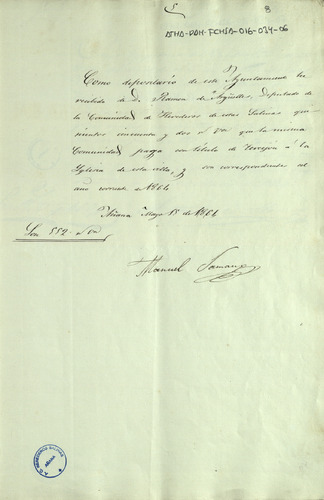 5
8
ATHA-DAH-FCHSA-016-024-06
Como depositario de este Ayuntamiento he
recibido de D. Ramon de Argüelles, Diputado de
la Comunidad de Herederos de estas Salinas qui-
nientos cincuenta y dos rs vn que la misma
Comunidad paga con titulo de a la
Yglesia de esta villa, y son correspondientes al
año corriente de 1864
Añana Mayo 15 de 1864
Son 552 rs vn
Manuel